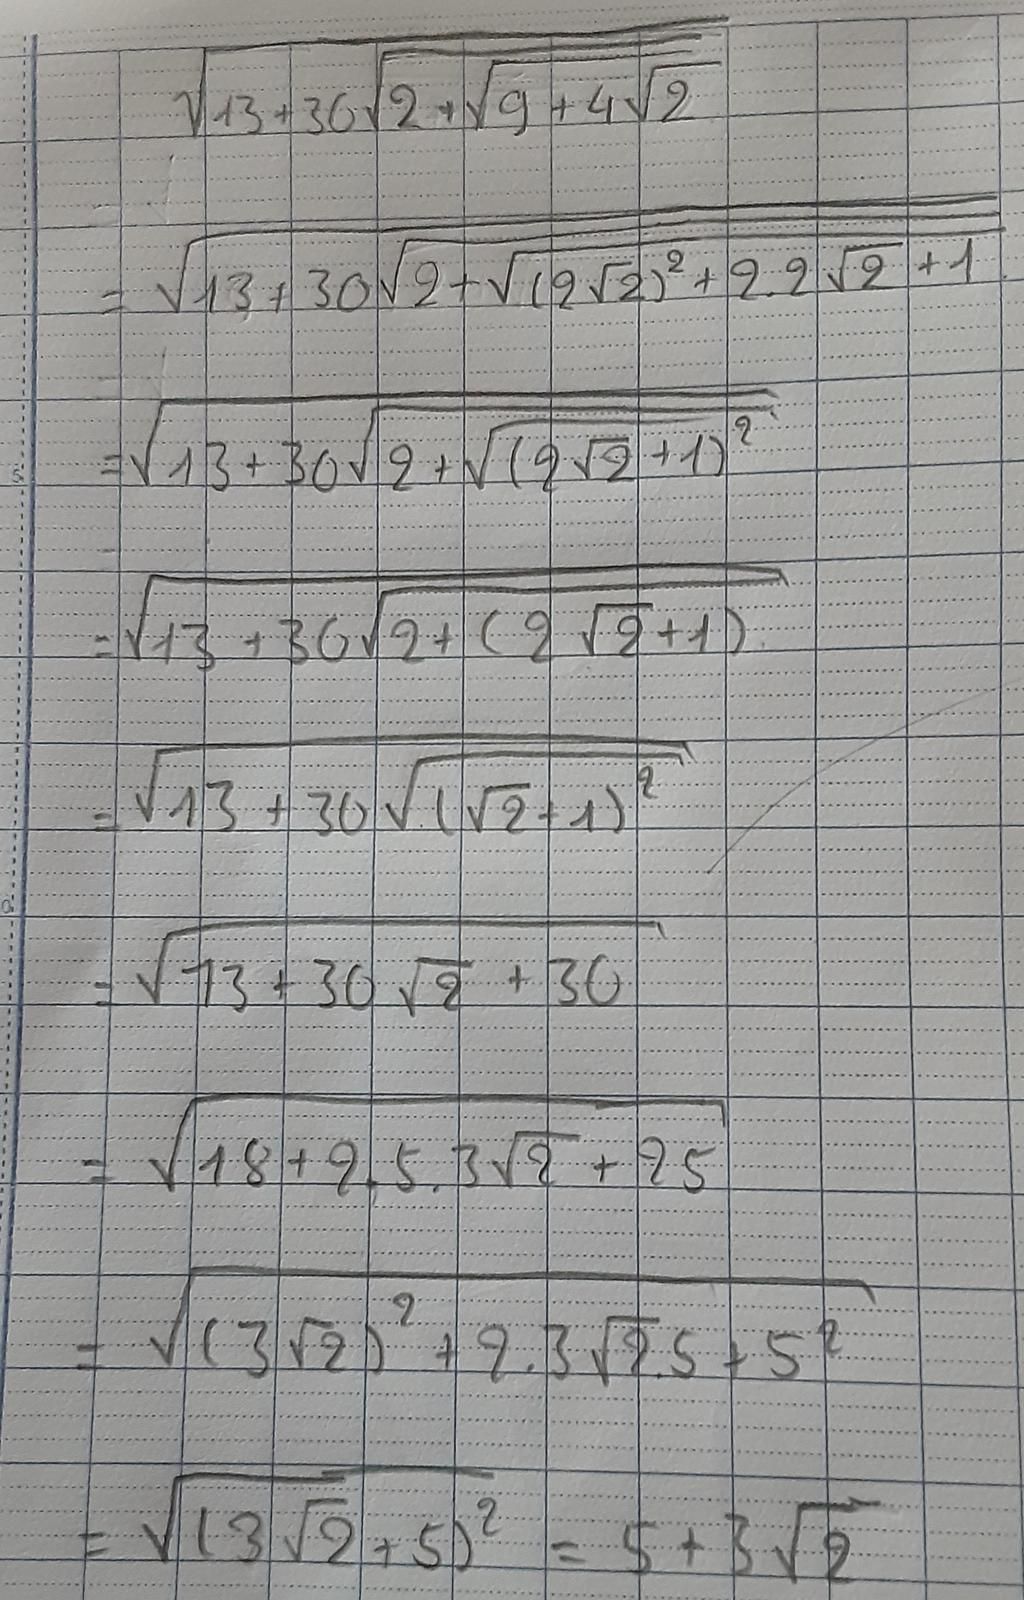 √(13+30√(2+√(9+4√2)))
= √(13+30√(2+√((2√2)²+2.2√2+1)))
= √(13+30√(2+√((2√2+1)²)))
= √(13+30√(2+(2√2+1)))
= √(13+30√((√2+1)²))
= √(13+30√2+30)
= √(18+2.5.3√2+25)
= √((3√2)²+2.3√2.5+5²)
= √((3√2+5)²) = 5+3√2